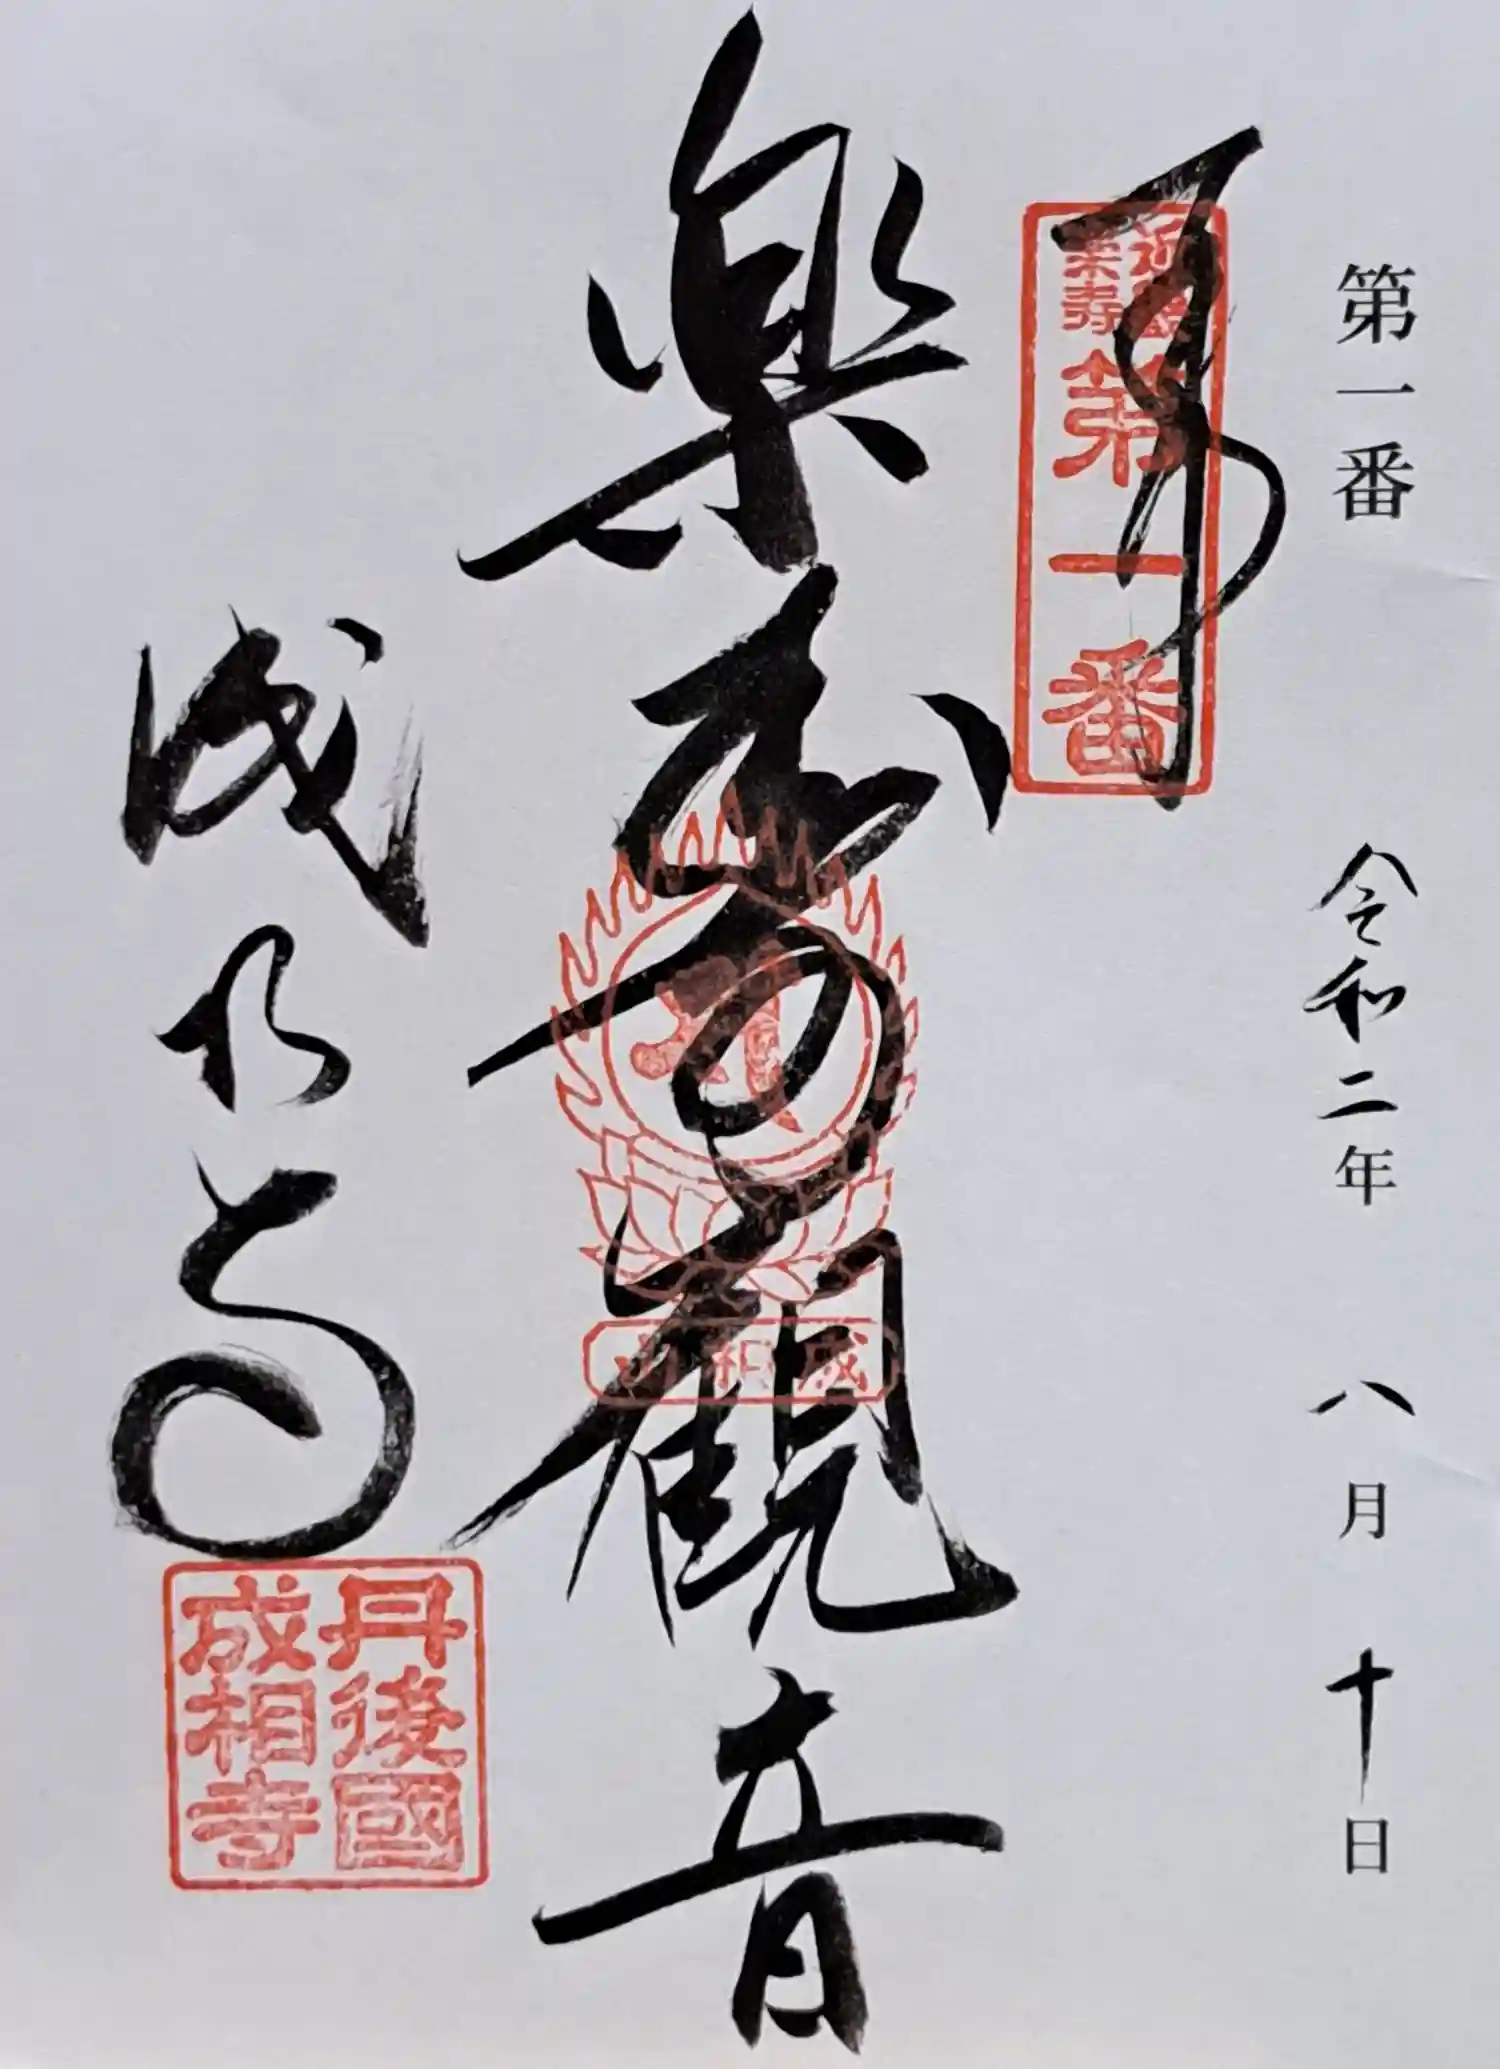 第一番 令和二年 八月 十日
奉拝
第一番
楽寿観音
成相山
成相寺
丹後國
成相寺